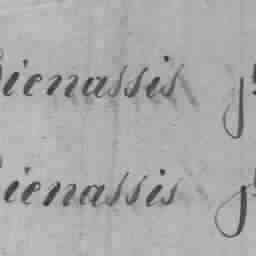 Bienassis j
Bienassis j